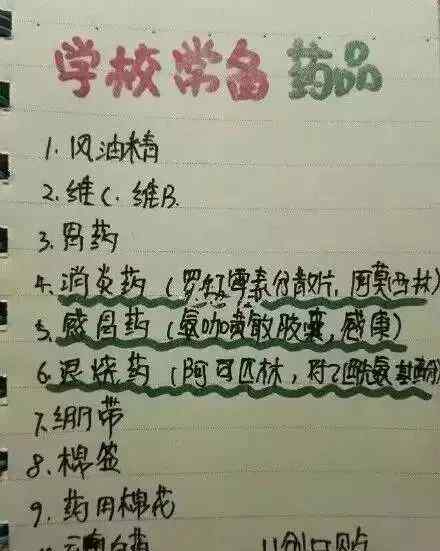 学校常备药品
1. 风油精
2. 维C. 维B.
3. 胃药
4. 消炎药(罗红霉素分散片,阿莫西林)
5. 感冒药(氨咖黄敏胶囊,感康)
6. 退烧药(阿司匹林,对乙酰氨基酚
7. 绷带
8. 棉签
9. 药用棉花
云南白药 11创口贴